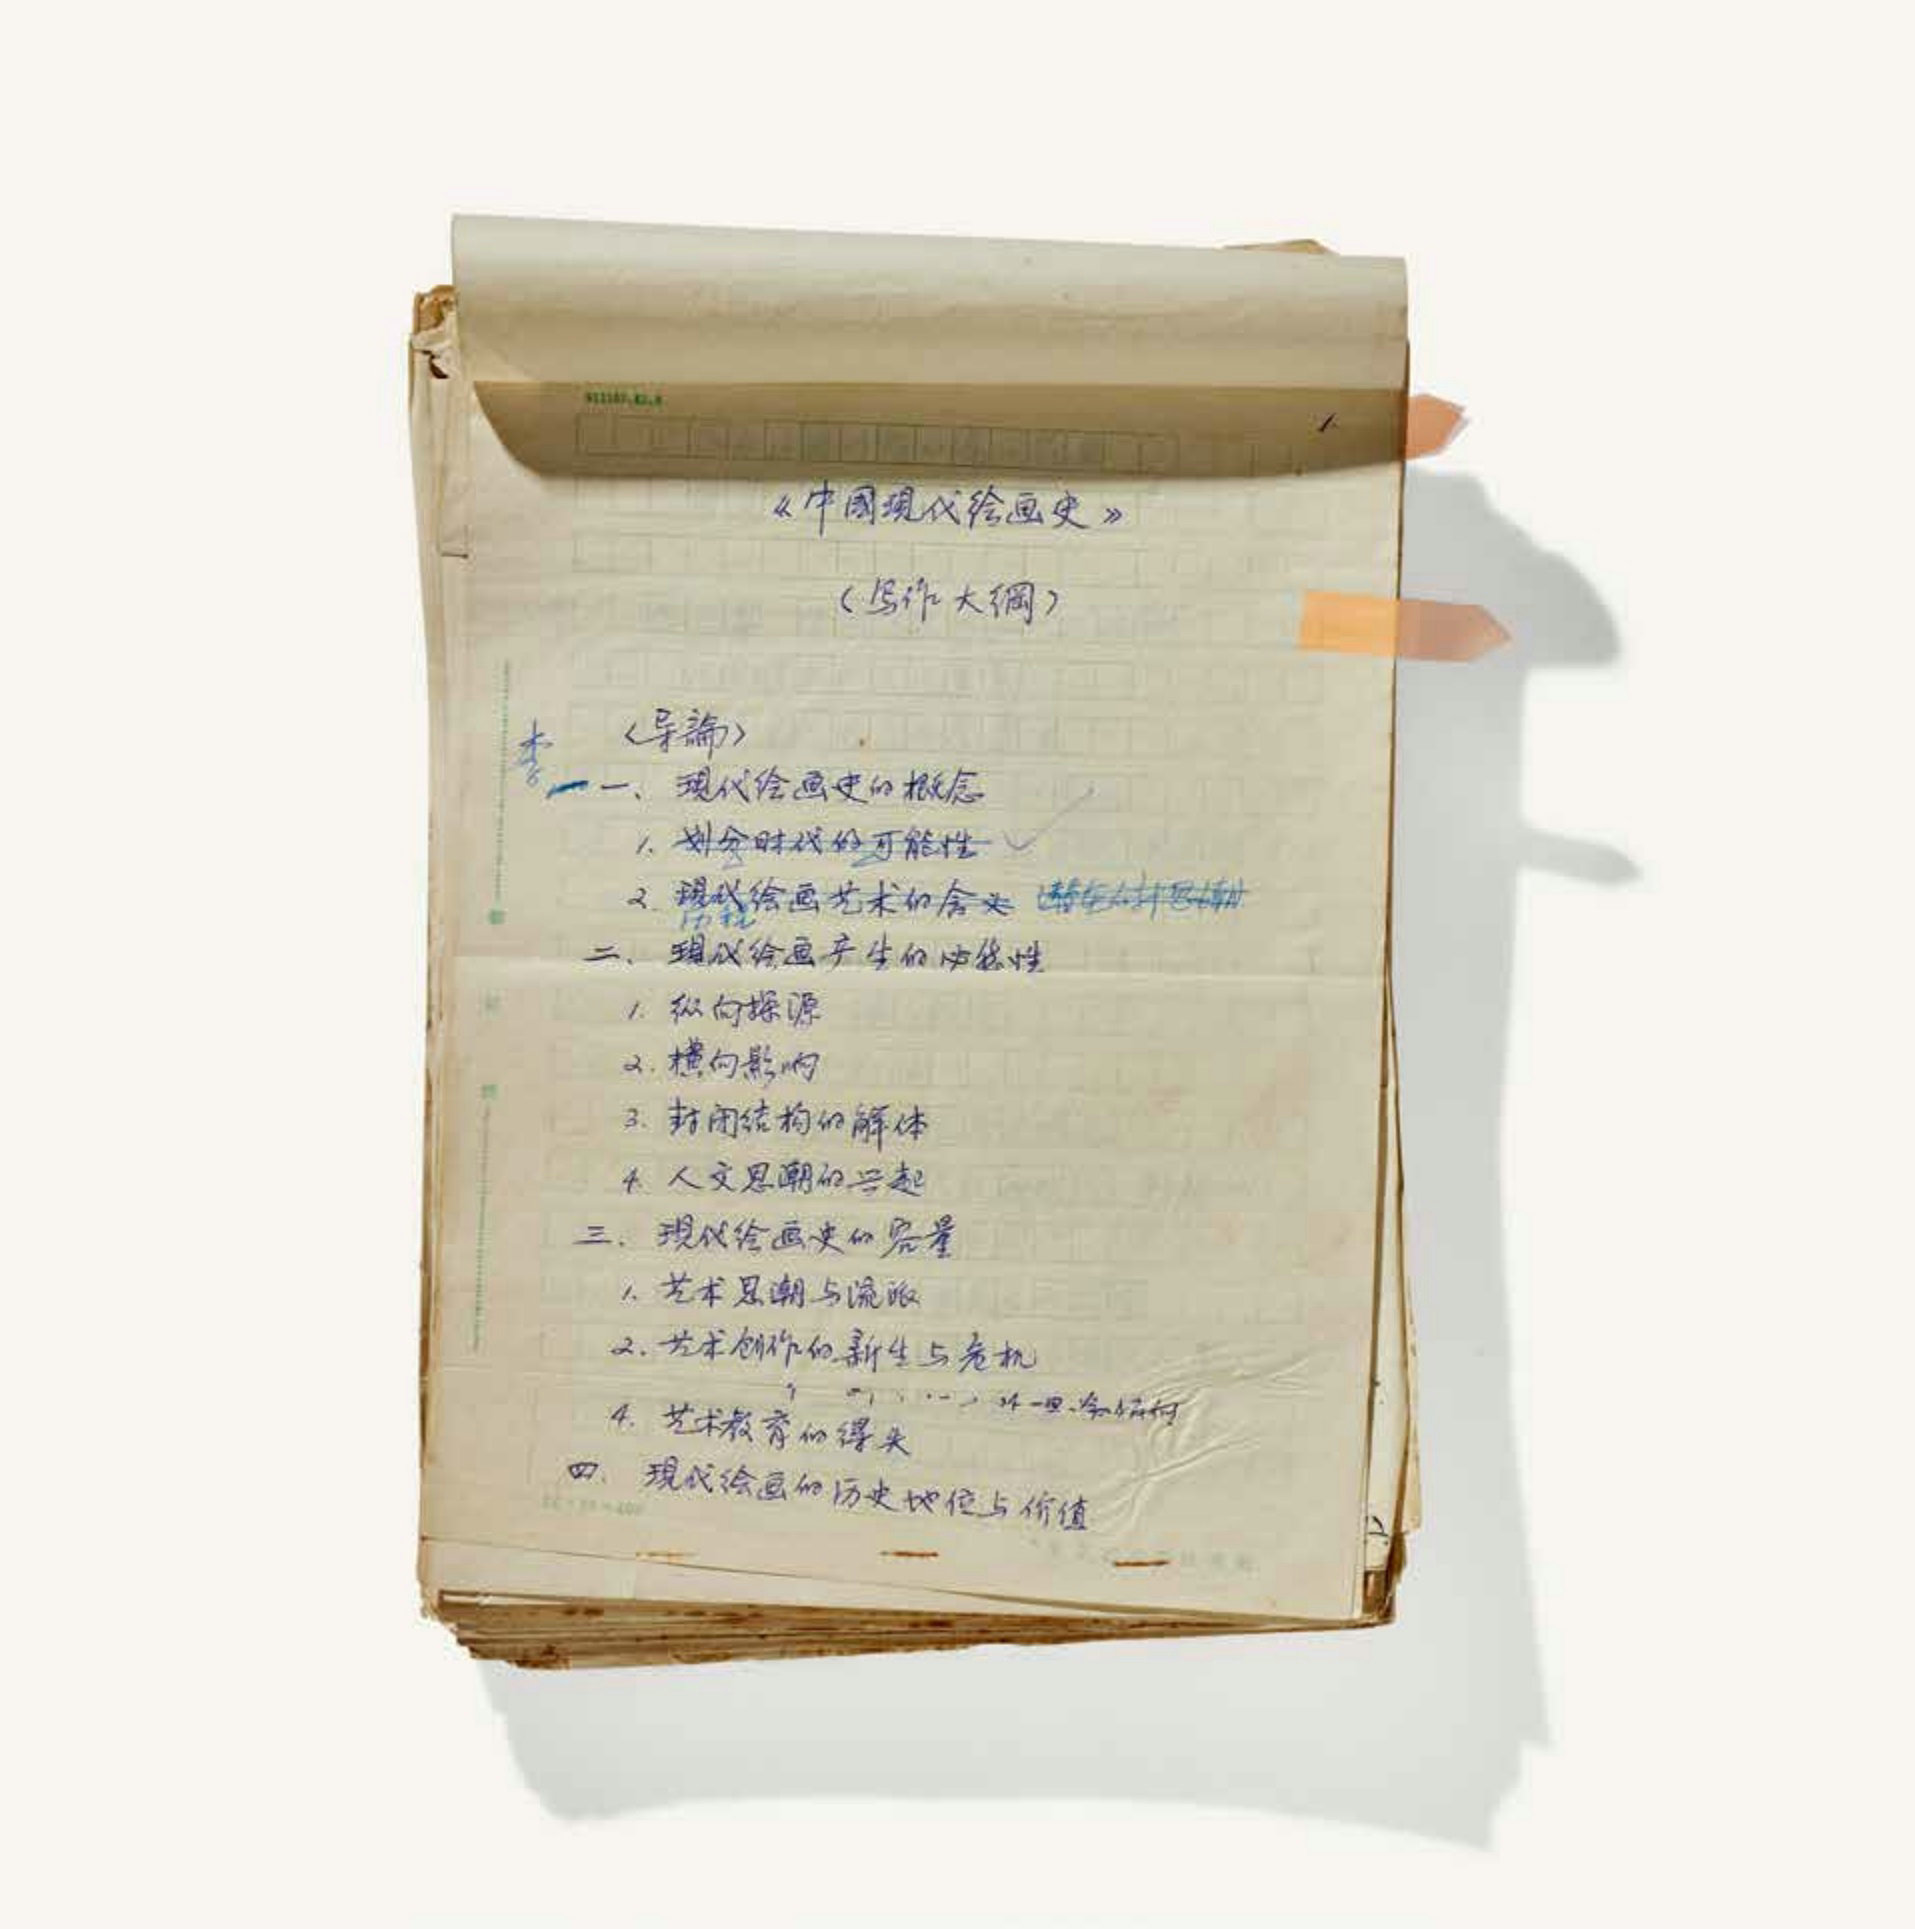 1.
《中國現代绘画史》
(写作大綱)
〈导論〉
一、現代绘画史的概念
1. 划分时代的可能性
2. 現代绘画艺术的含义
二、現代绘画产生的必然性
1. 纵向探源
2. 横向影响
3. 封闭结构的解体
4. 人文思潮的兴起
三、現代绘画史的容量
1. 艺术思潮与流派
2. 艺术创作的新生与危机
4. 艺术教育的得失
四、現代绘画的历史地位与价值